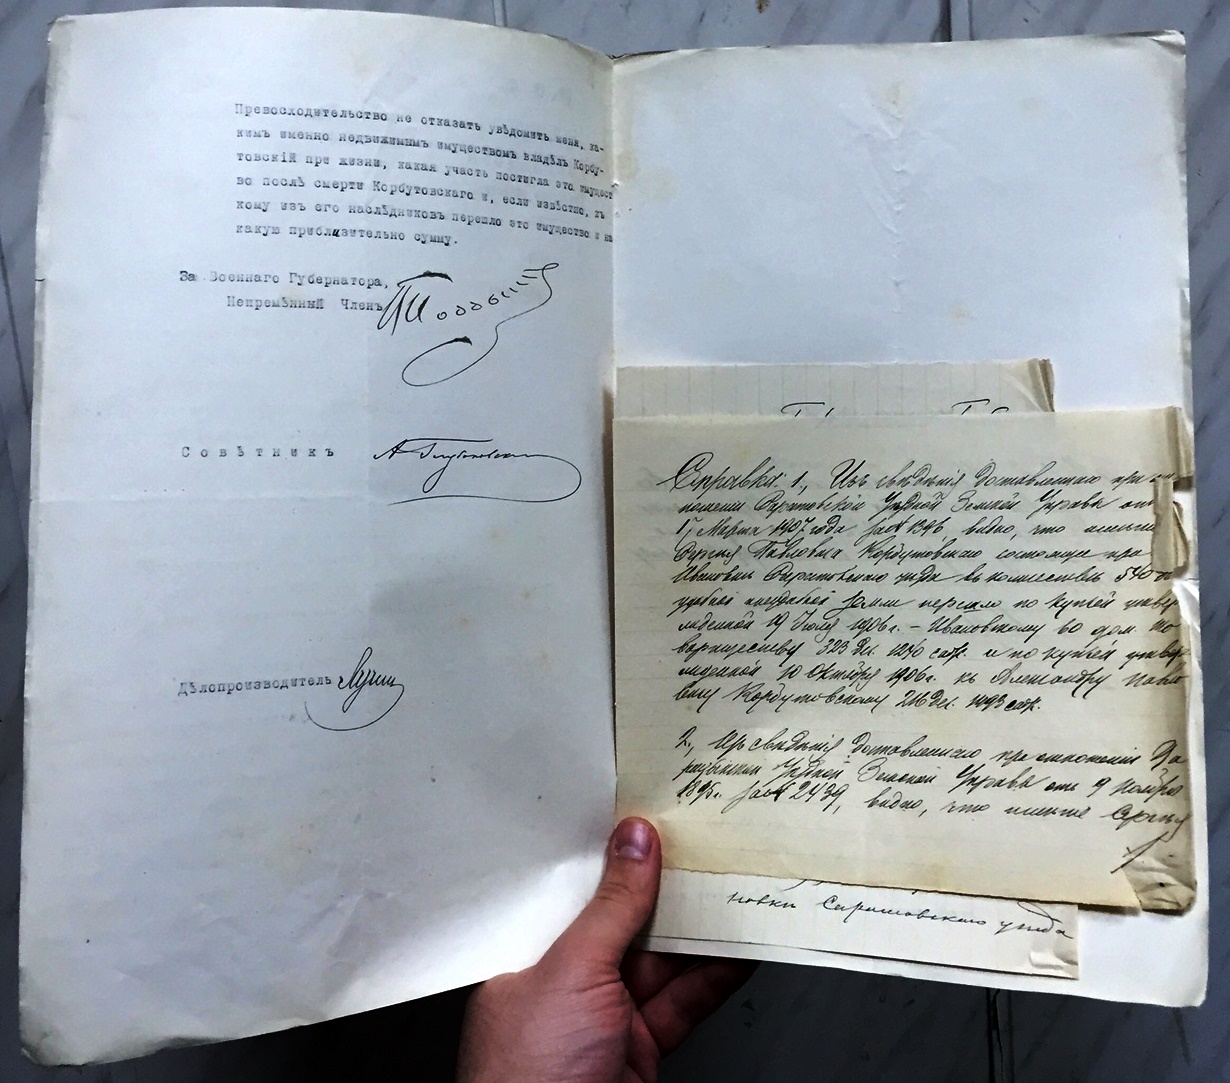 Превосходительство не отказать увѣдомить меня, ка-
кимъ именно недвижимымъ имуществомъ владѣлъ Корбу-
товскій при жизни, какая участь постигла это имущест
во послѣ смерти Корбутовскаго и, если извѣстно, къ
кому изъ его наслѣдниковъ перешло это имущество и на
какую приблизительно сумму.
За Военнаго Губернатора,
Непремѣнный Членъ
Совѣтникъ
Дѣлопроизводитель
Справка: 1., Изъ свѣдѣнія доставленнаго при от
ношеніи Саратовской Уѣздной Земской Управы отъ
17 Марта 1907 года за № 1396, видно, что имѣніе
Сергѣя Павловича Корбутовскаго состоящее при
Ивановкѣ Саратовскаго уѣзда въ количествѣ 540 д
удобной неудобной земли перешло по купчей утвер
жденной 19 Іюля 1906 г. - Ивановскому во дом. то
вариществу 323 дес. 1240 саж. и по купчей утвер
жденной 10 Октября 1906 г. къ Александру Павло
вичу Корбутовскому 216 дес. 1493 саж.
2., Изъ свѣдѣнія доставленнаго при отношеніи
Уѣздной Земской Управы отъ 9 Ноября
1895 г. за № 2439, видно, что имѣніе Сергѣя
новки Саратовскаго уѣзда